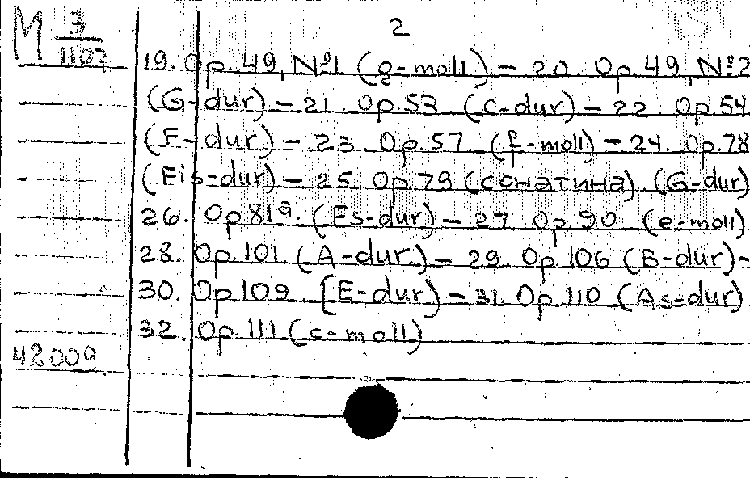 М 3/1107
2
19. Op. 49, №1 (g-moll) – 20. Op. 49, №2
(G-dur) – 21. Op. 53 (C-dur) – 22. Op. 54
(F-dur) – 23. Op. 57 (f-moll) – 24. Op. 78
(Fis-dur) – 25. Op. 79 (сонатина) (G-dur)
26. Op 81a. (Es-dur) – 27. Op. 90 (e-moll)
28. Op. 101 (A-dur) – 29. Op. 106 (B-dur) –
30. Op 109 (E-dur) – 31. Op. 110 (As-dur)
32. Op. 111 (c-moll)